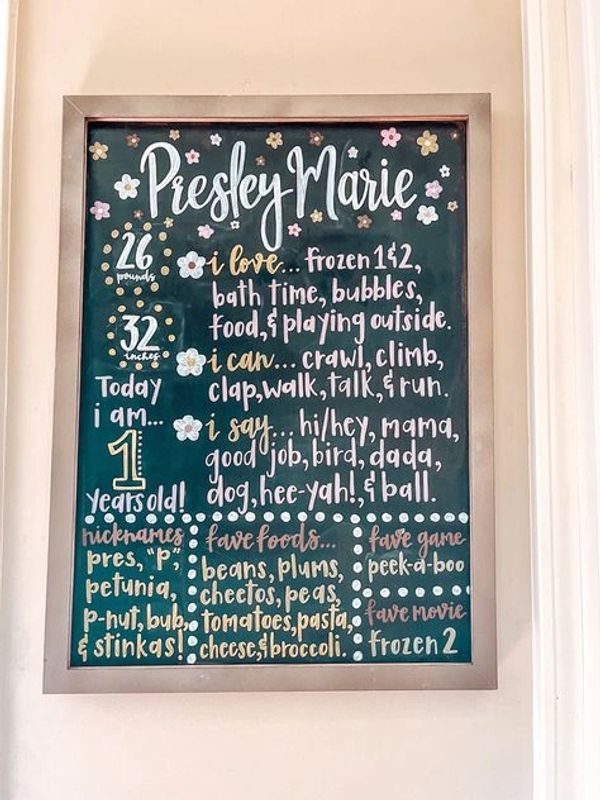 Presley Marie
26
pounds
32
inches
Today
i am...
1
years old!
i love... frozen 1&2,
bath time, bubbles,
food, & playing outside.
i can... crawl, climb,
clap, walk, talk, & run.
i say... hi/hey, mama,
good job, bird, dada,
dog, hee-yah!, & ball.
nicknames
pres, "p",
petunia,
p-nut, bub,
& stinkas!
fave foods...
beans, plums,
cheetos, peas,
tomatoes, pasta,
cheese, & broccoli.
fave game
peek-a-boo
fave movie
frozen 2